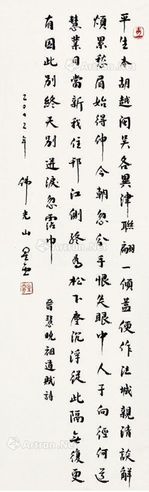 平生本胡越關吳各異津聯翩一傾蓋便作法城親清談解
煩累愁眉始得伸今朝忽分手恨失眼中人子向徑何道
慧業日當新我住邗江側終為松下塵沉浮從此隔無復更
有因此別終天別迸淚忽霑巾
晉慧曉祖道賦詩
二〇〇二年 佛光山星雲